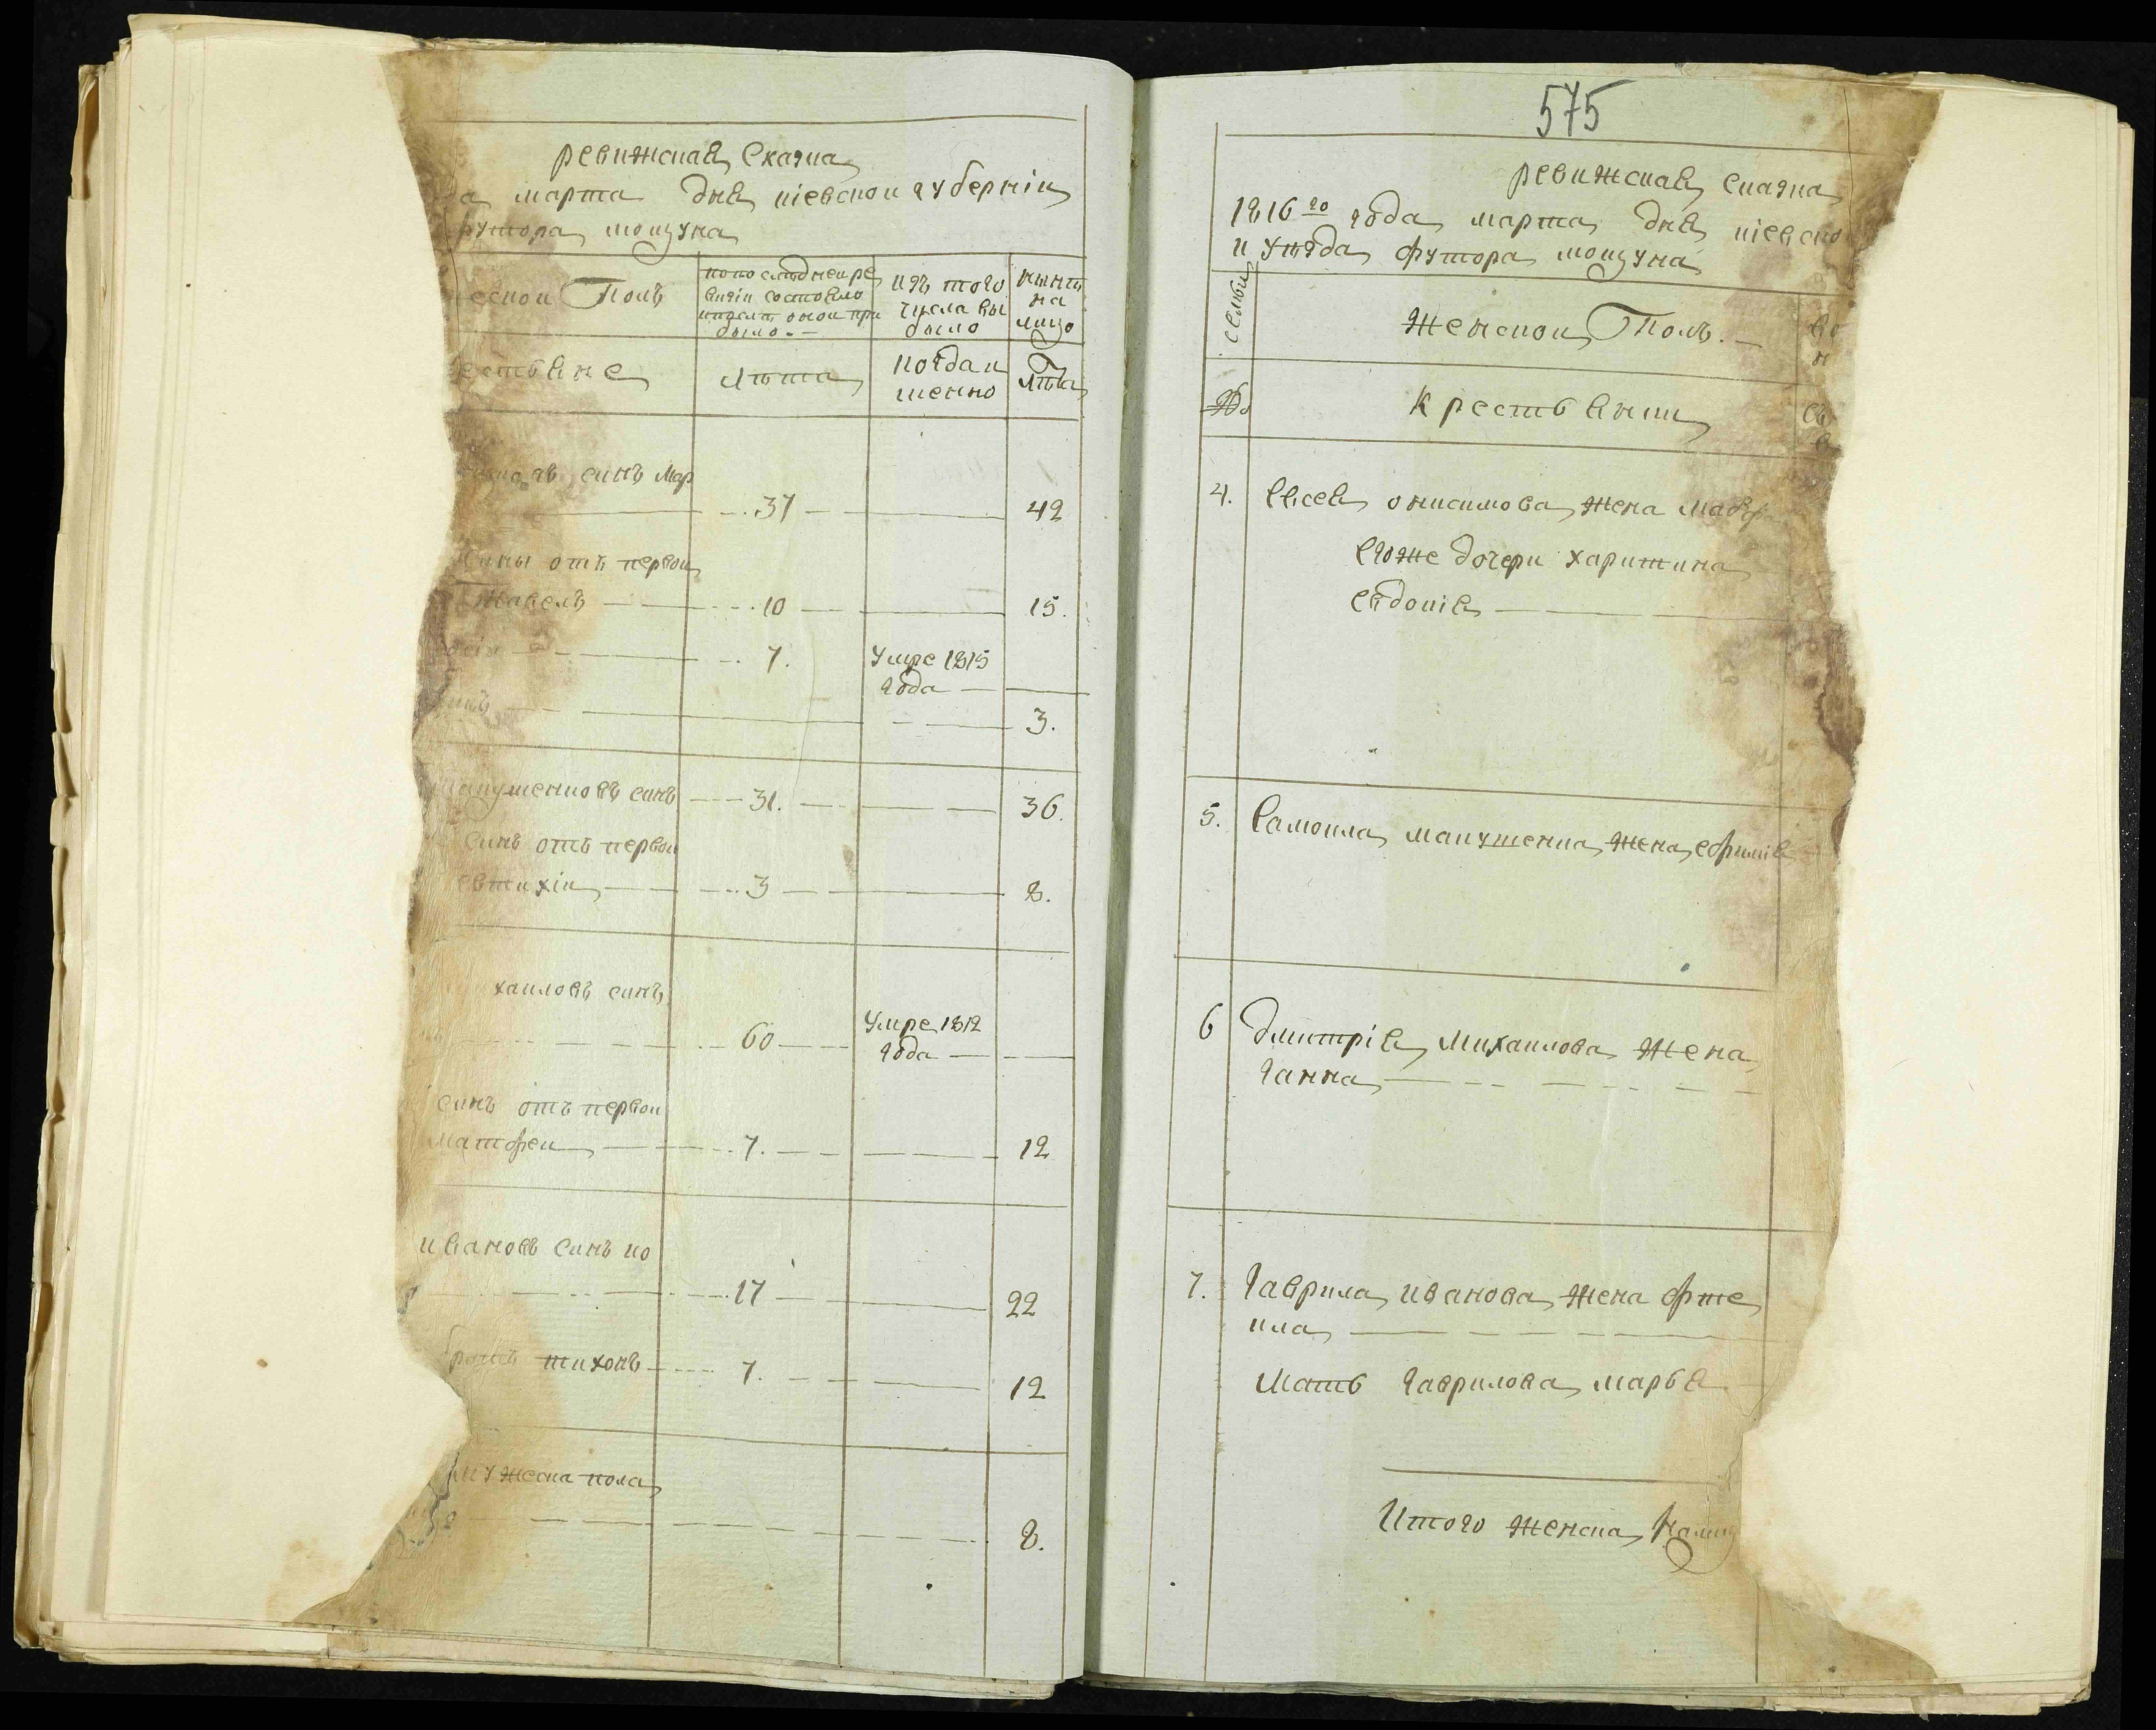 ревижская сказка
марта дня киевской губернии
футора мощуна
Полъ
попоследней ре
визіи состояло
и после оной при
было. —
изъ того
числа вы
было
ныне
на
лицо
лета
когда и
менно
лета
синъ Мар
37
42
сины отъ первой
Павелъ
10
15.
7.
Умре 1815
года
3.
31.
36.
синъ отъ первой
евтихіи
3
8.
хаиловъ синъ
60
Умре 1812
года
синъ отъ первой
матфеи
7.
12
ивановъ синъ ко
17
22
братъ тихонъ
7.
12
мужеска пола
8.
575
ревижская сказка
1816го года марта дня киевско
и уезда футора мощуна
семьи
Женской Полъ. —
№
Крестьянки
4.
Евсея онисимова жена мавра
Егоже дочери харитина
евдокія
5.
Самоила макушенка жена ефимія
6
Дмитрія Михаилова жена
Ганна
7.
Гаврила иванова жена фте
кла
Мать гаврилова марья
Итого женска